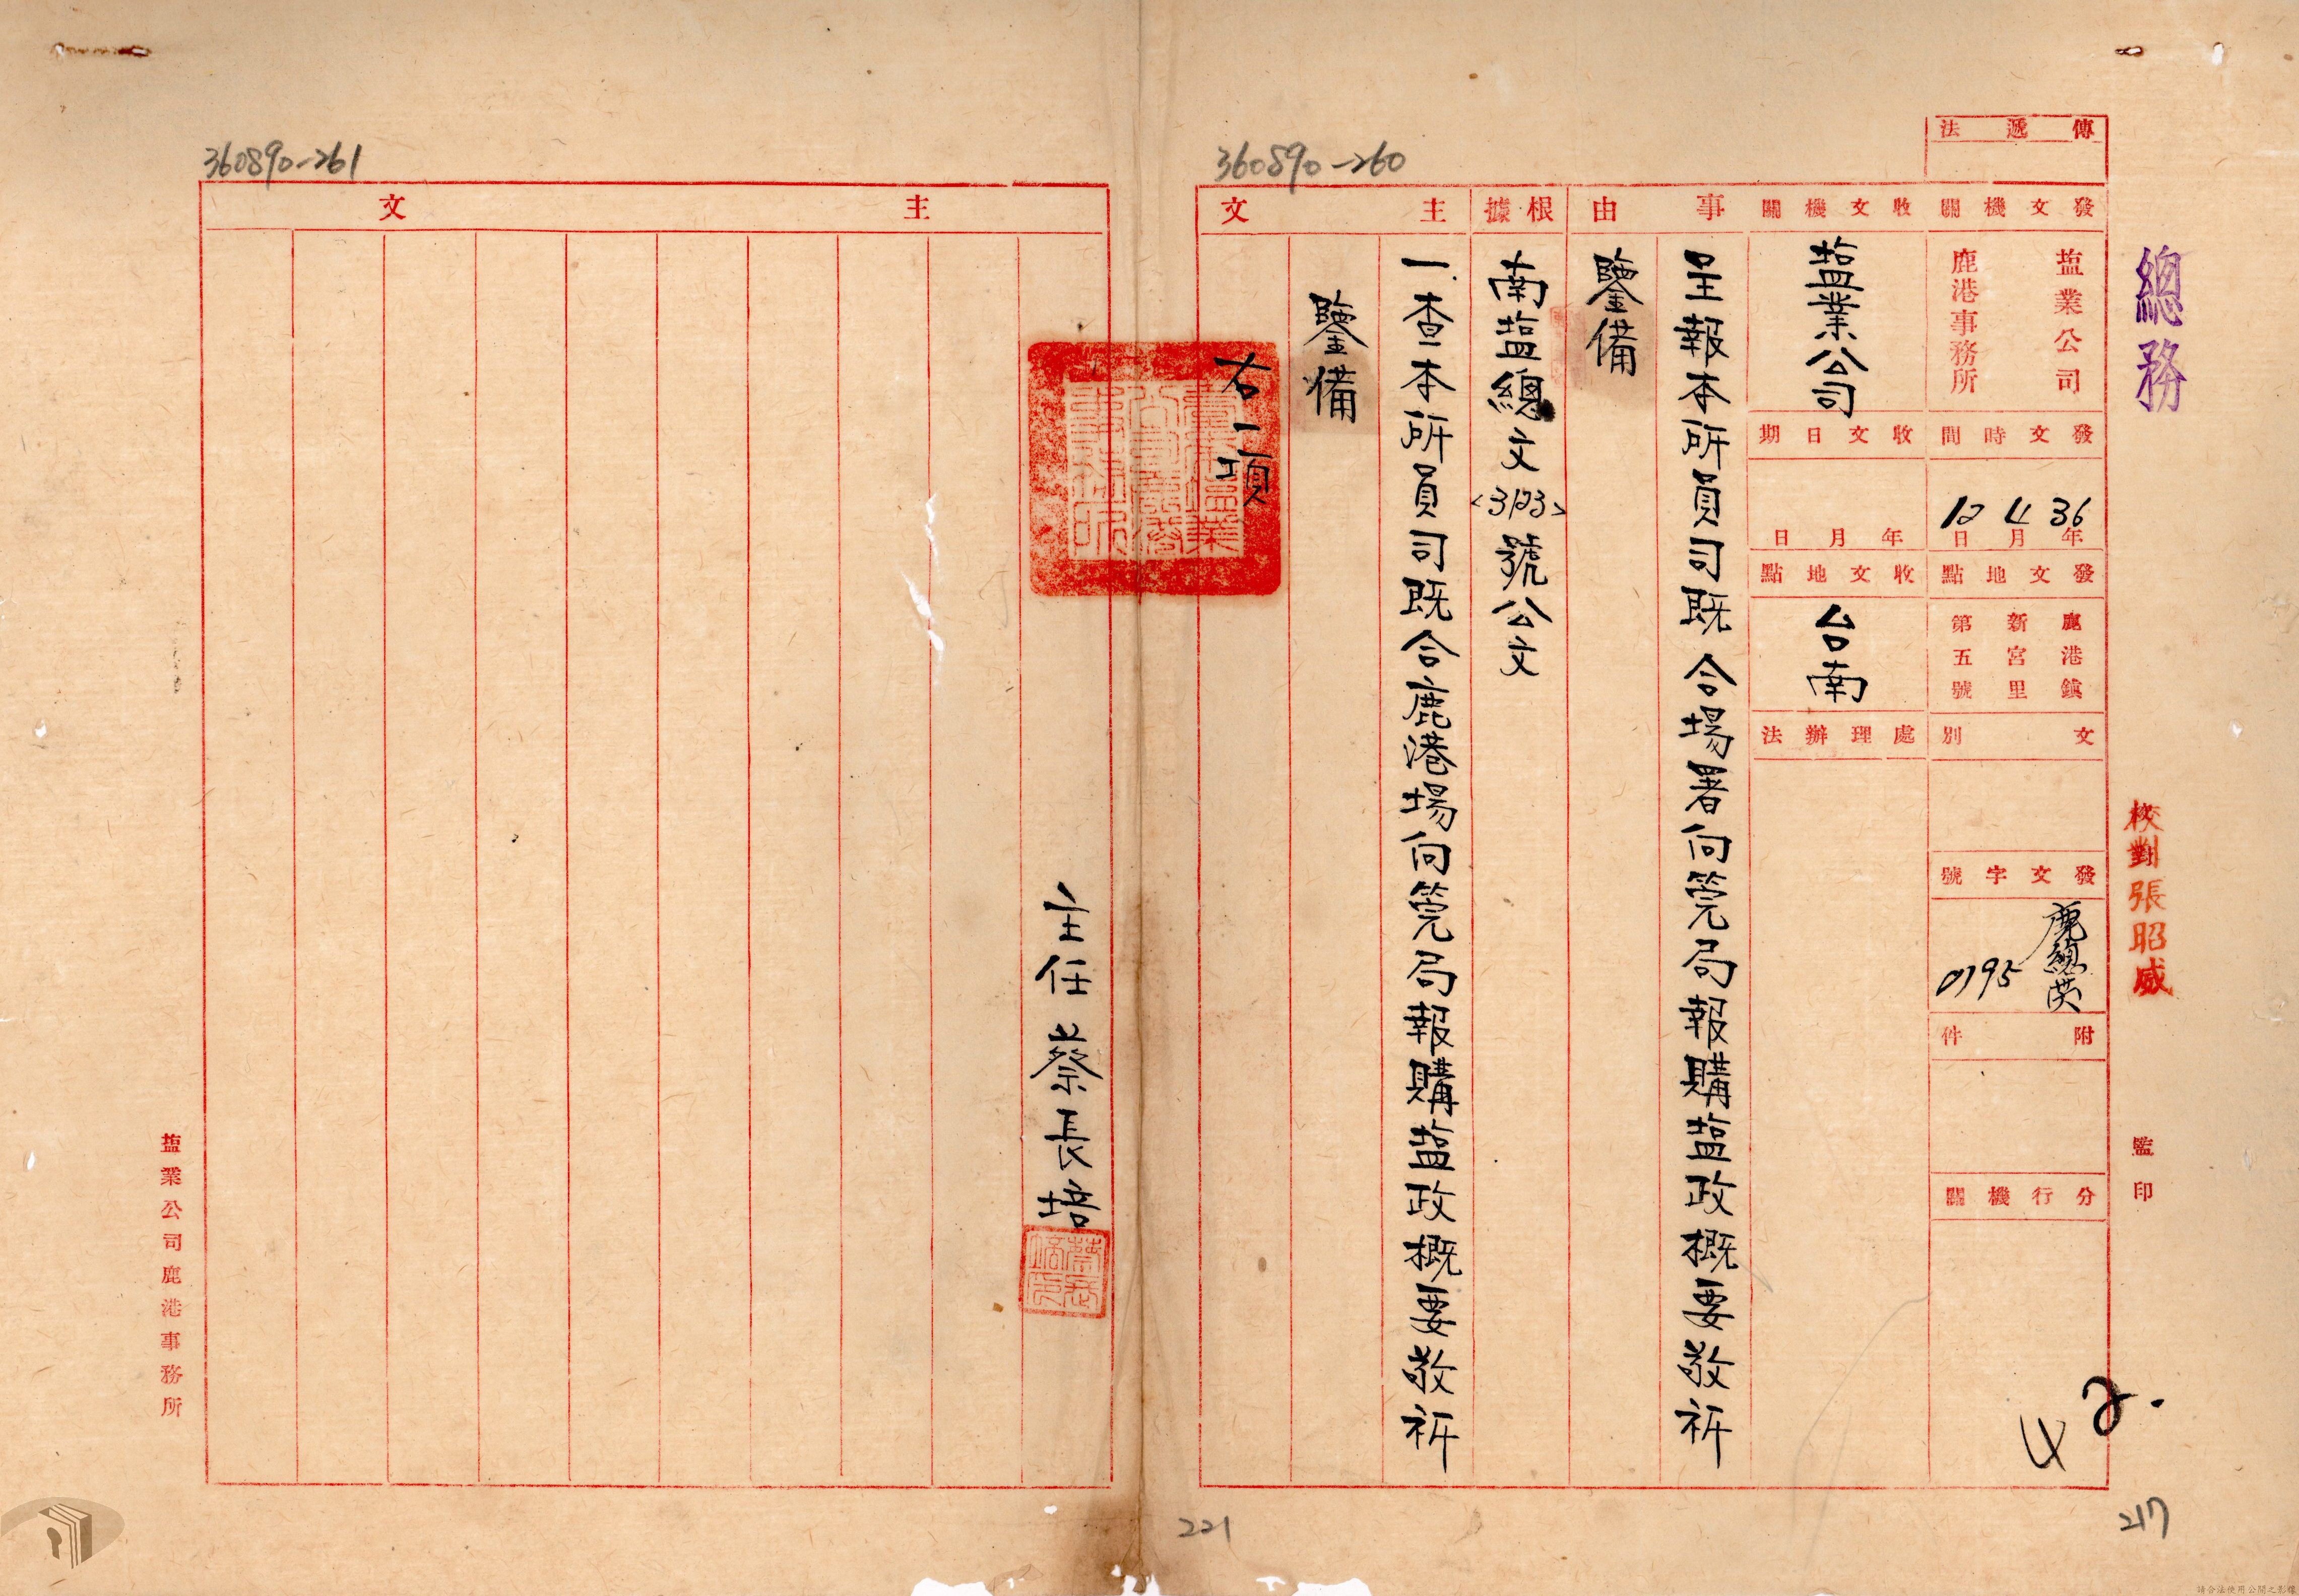 360890-261
360890-260
傳遞法
總務
校對張昭威
監印
發文機關
塩業公司
鹿港事務所
發文時間
36年4月12日
發文地點
鹿港鎮
新宮里
第五號
文別
發文字號
鹿總
0795
附件
分行機關
2.
4
收文機關
塩業公司
收文日期
年月日
收文地點
台南
處理辦法
事由
呈報本所員司既合場署向筦局報購塩政概要敬祈
鑒備
根據
南塩總文<3123>號公文
主文
一.查本所員司既合鹿港場向筦局報購塩政概要敬祈
鑒備
右一項
主文
主任蔡長培
塩業公司鹿港事務所
221
217
請合法使用公開之影像